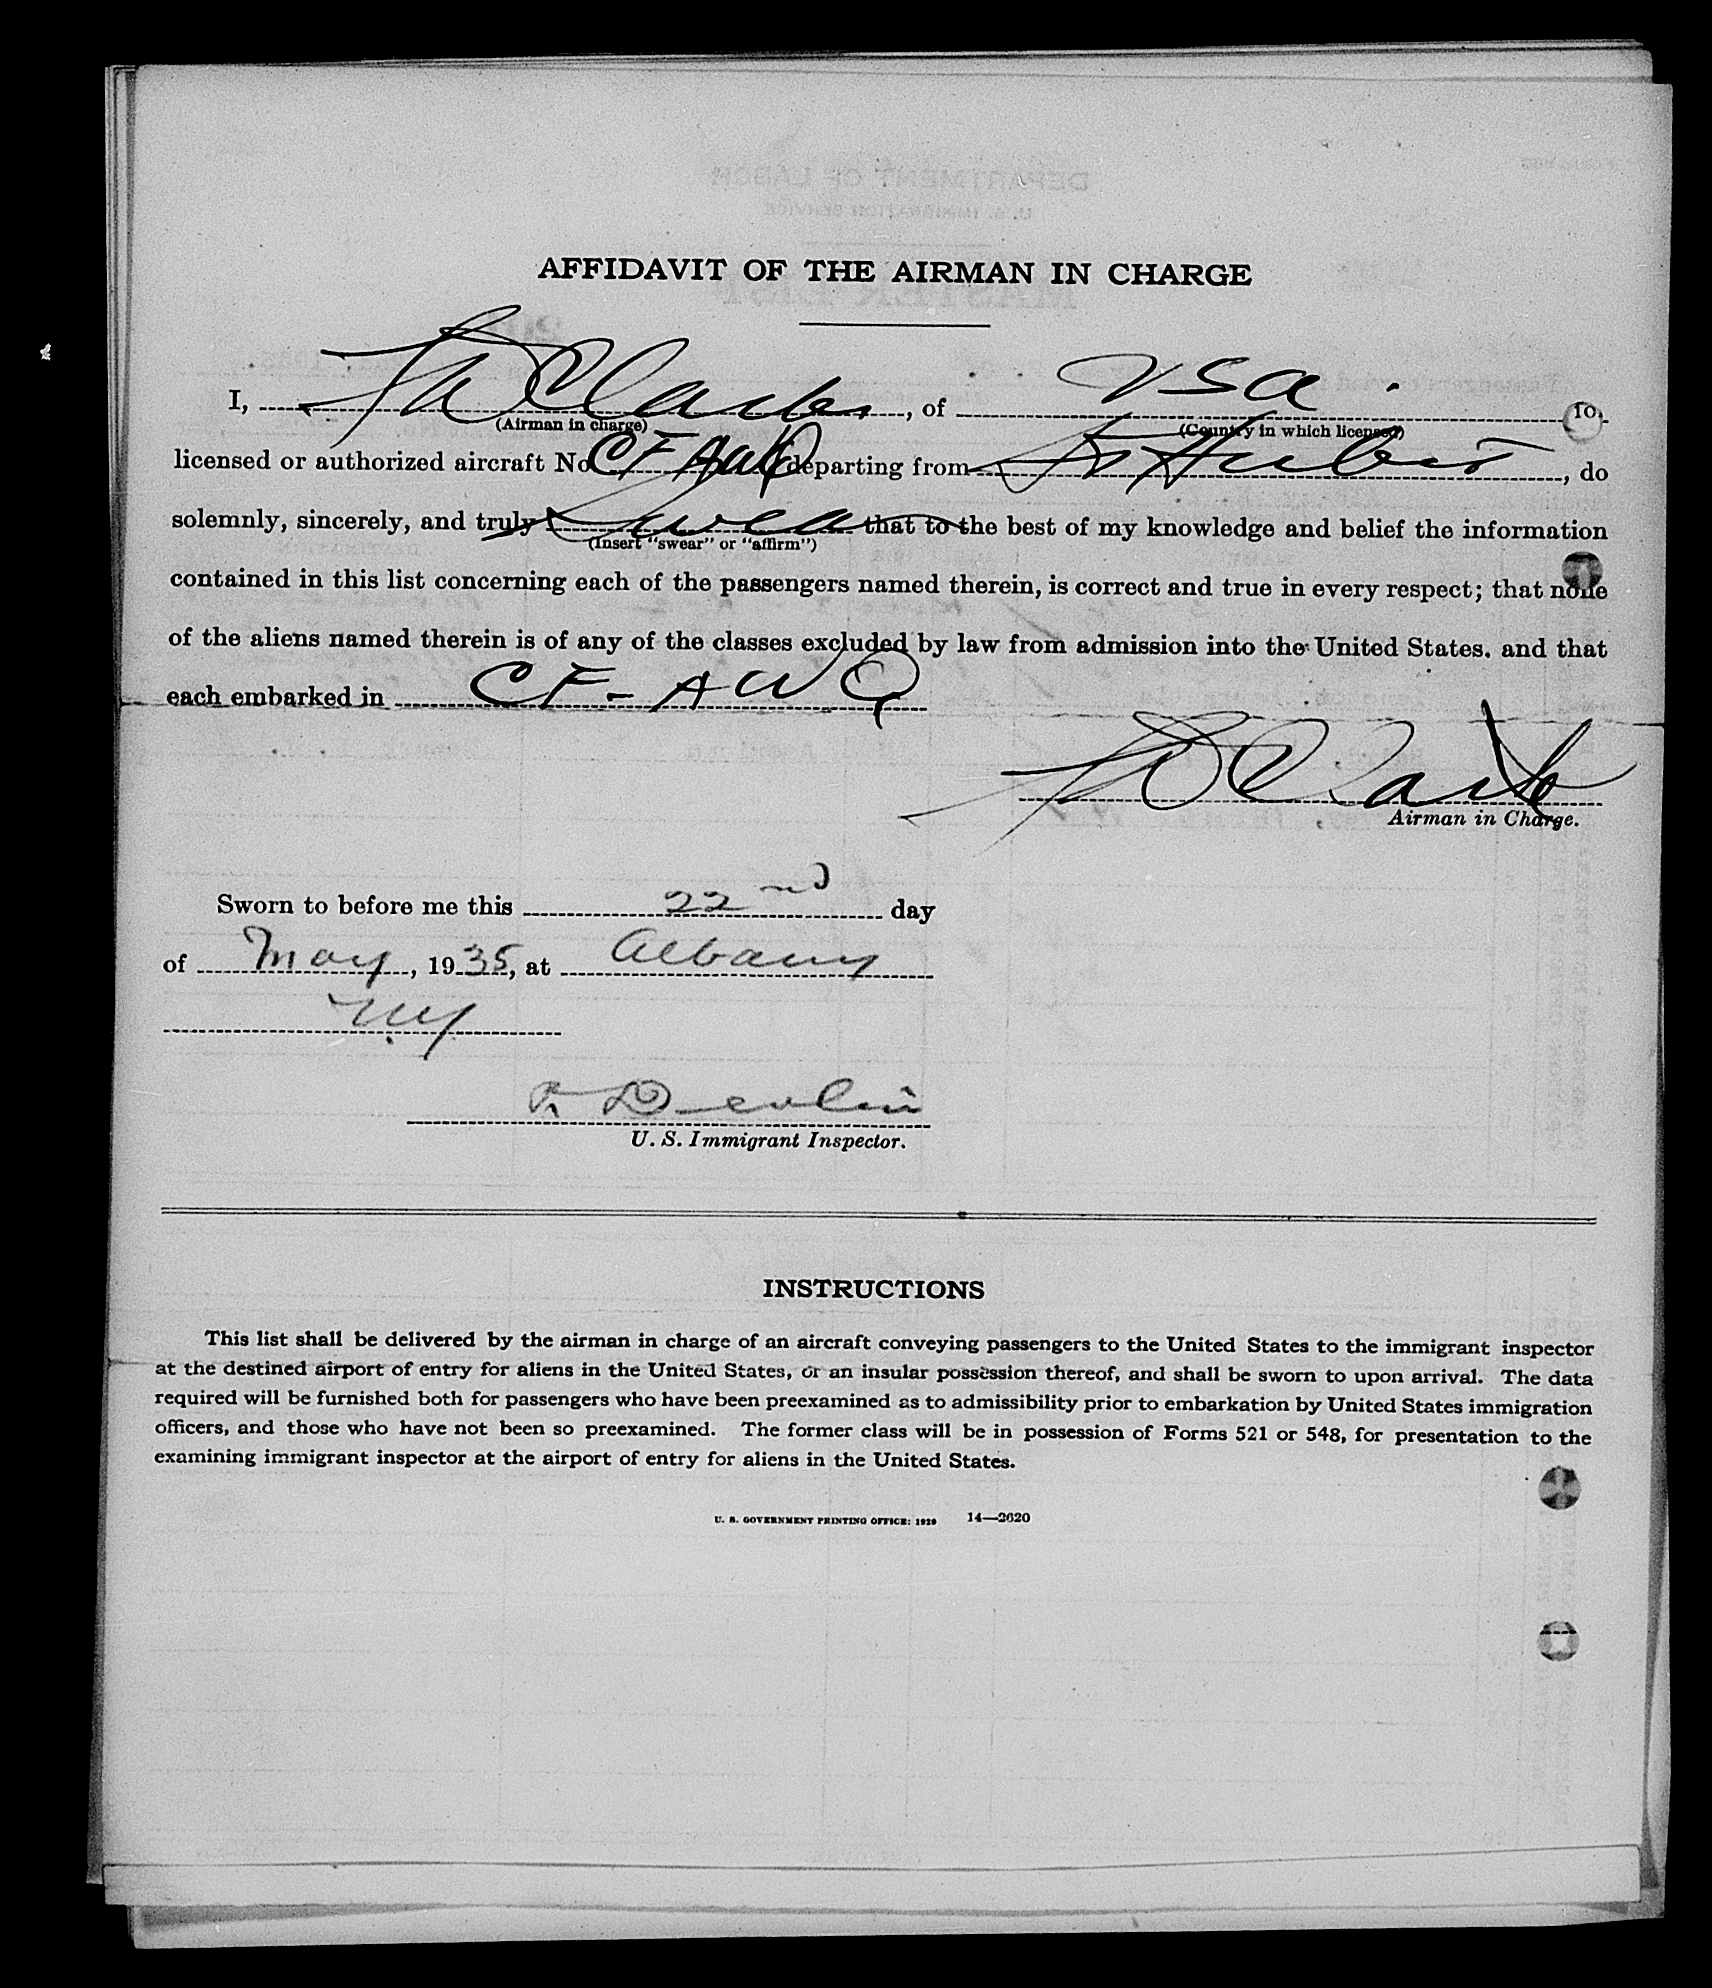 AFFIDAVIT OF THE AIRMAN IN CHARGE
I, Clarke, of USA.
(Airman in charge) (Country in which licensed)
licensed or authorized aircraft No CF AWQ departing from St Hubert, do
solemnly, sincerely, and truly Swear that to the best of my knowledge and belief the information
(Insert "swear" or "affirm")
contained in this list concerning each of the passengers named therein, is correct and true in every respect; that none
of the aliens named therein is of any of the classes excluded by law from admission into the United States, and that
each embarked in CF-AWQ
Clarke
Airman in Charge.
Sworn to before me this 22nd day
of May, 1935, at Albany
N.Y.
Devlin
U. S. Immigrant Inspector.
INSTRUCTIONS
This list shall be delivered by the airman in charge of an aircraft conveying passengers to the United States to the immigrant inspector
at the destined airport of entry for aliens in the United States, or an insular possession thereof, and shall be sworn to upon arrival. The data
required will be furnished both for passengers who have been preexamined as to admissibility prior to embarkation by United States immigration
officers, and those who have not been so preexamined. The former class will be in possession of Forms 521 or 548, for presentation to the
examining immigrant inspector at the airport of entry for aliens in the United States.
U. S. GOVERNMENT PRINTING OFFICE: 1929 14—2620